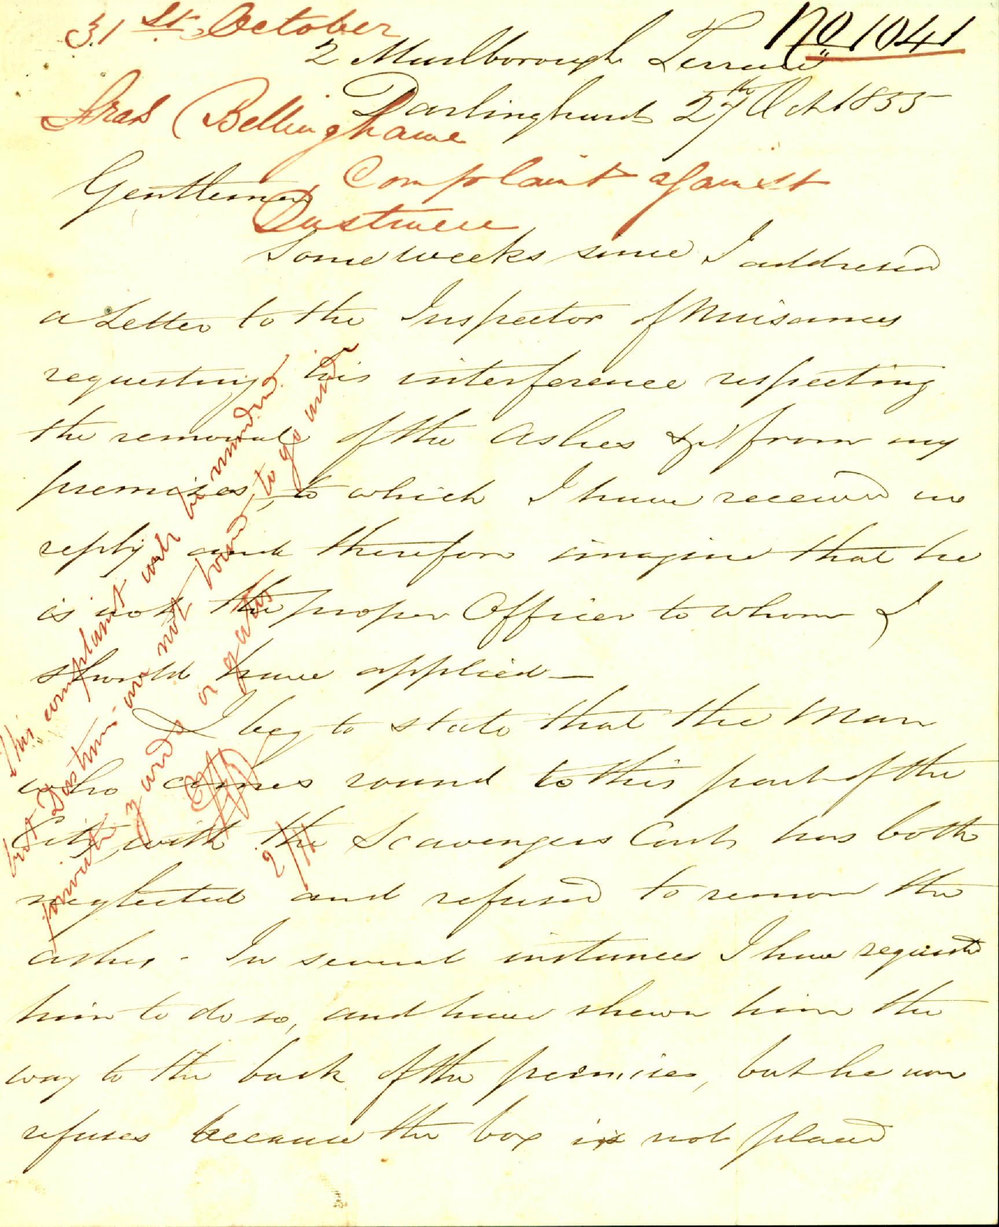 31st October
No 1041
2 Marlborough Terrace
Darlinghurst 27th Oct 1855
Fras Bellinghame
Complaint against
Dustmen
Gentlemen
Some weeks since I addressed
a Letter to the Inspector of Nuisances
requesting his interference respecting
the removal of the Ashes &c from my
premises, to which I have received no
reply and therefore imagine that he
is not the proper Officer to whom I
should have applied —
I beg to state that the Man
who comes round to this part of the
City with the Scavengers Cart has both
neglected and refused to remove the
ashes - In several instances I have requested
him to do so, and have shewn him the
way to the back of the premises, but he now
refuses because the box is not placed
This complaint will be minded
but Dustmen are not bound to go
private yards or gates
2/11